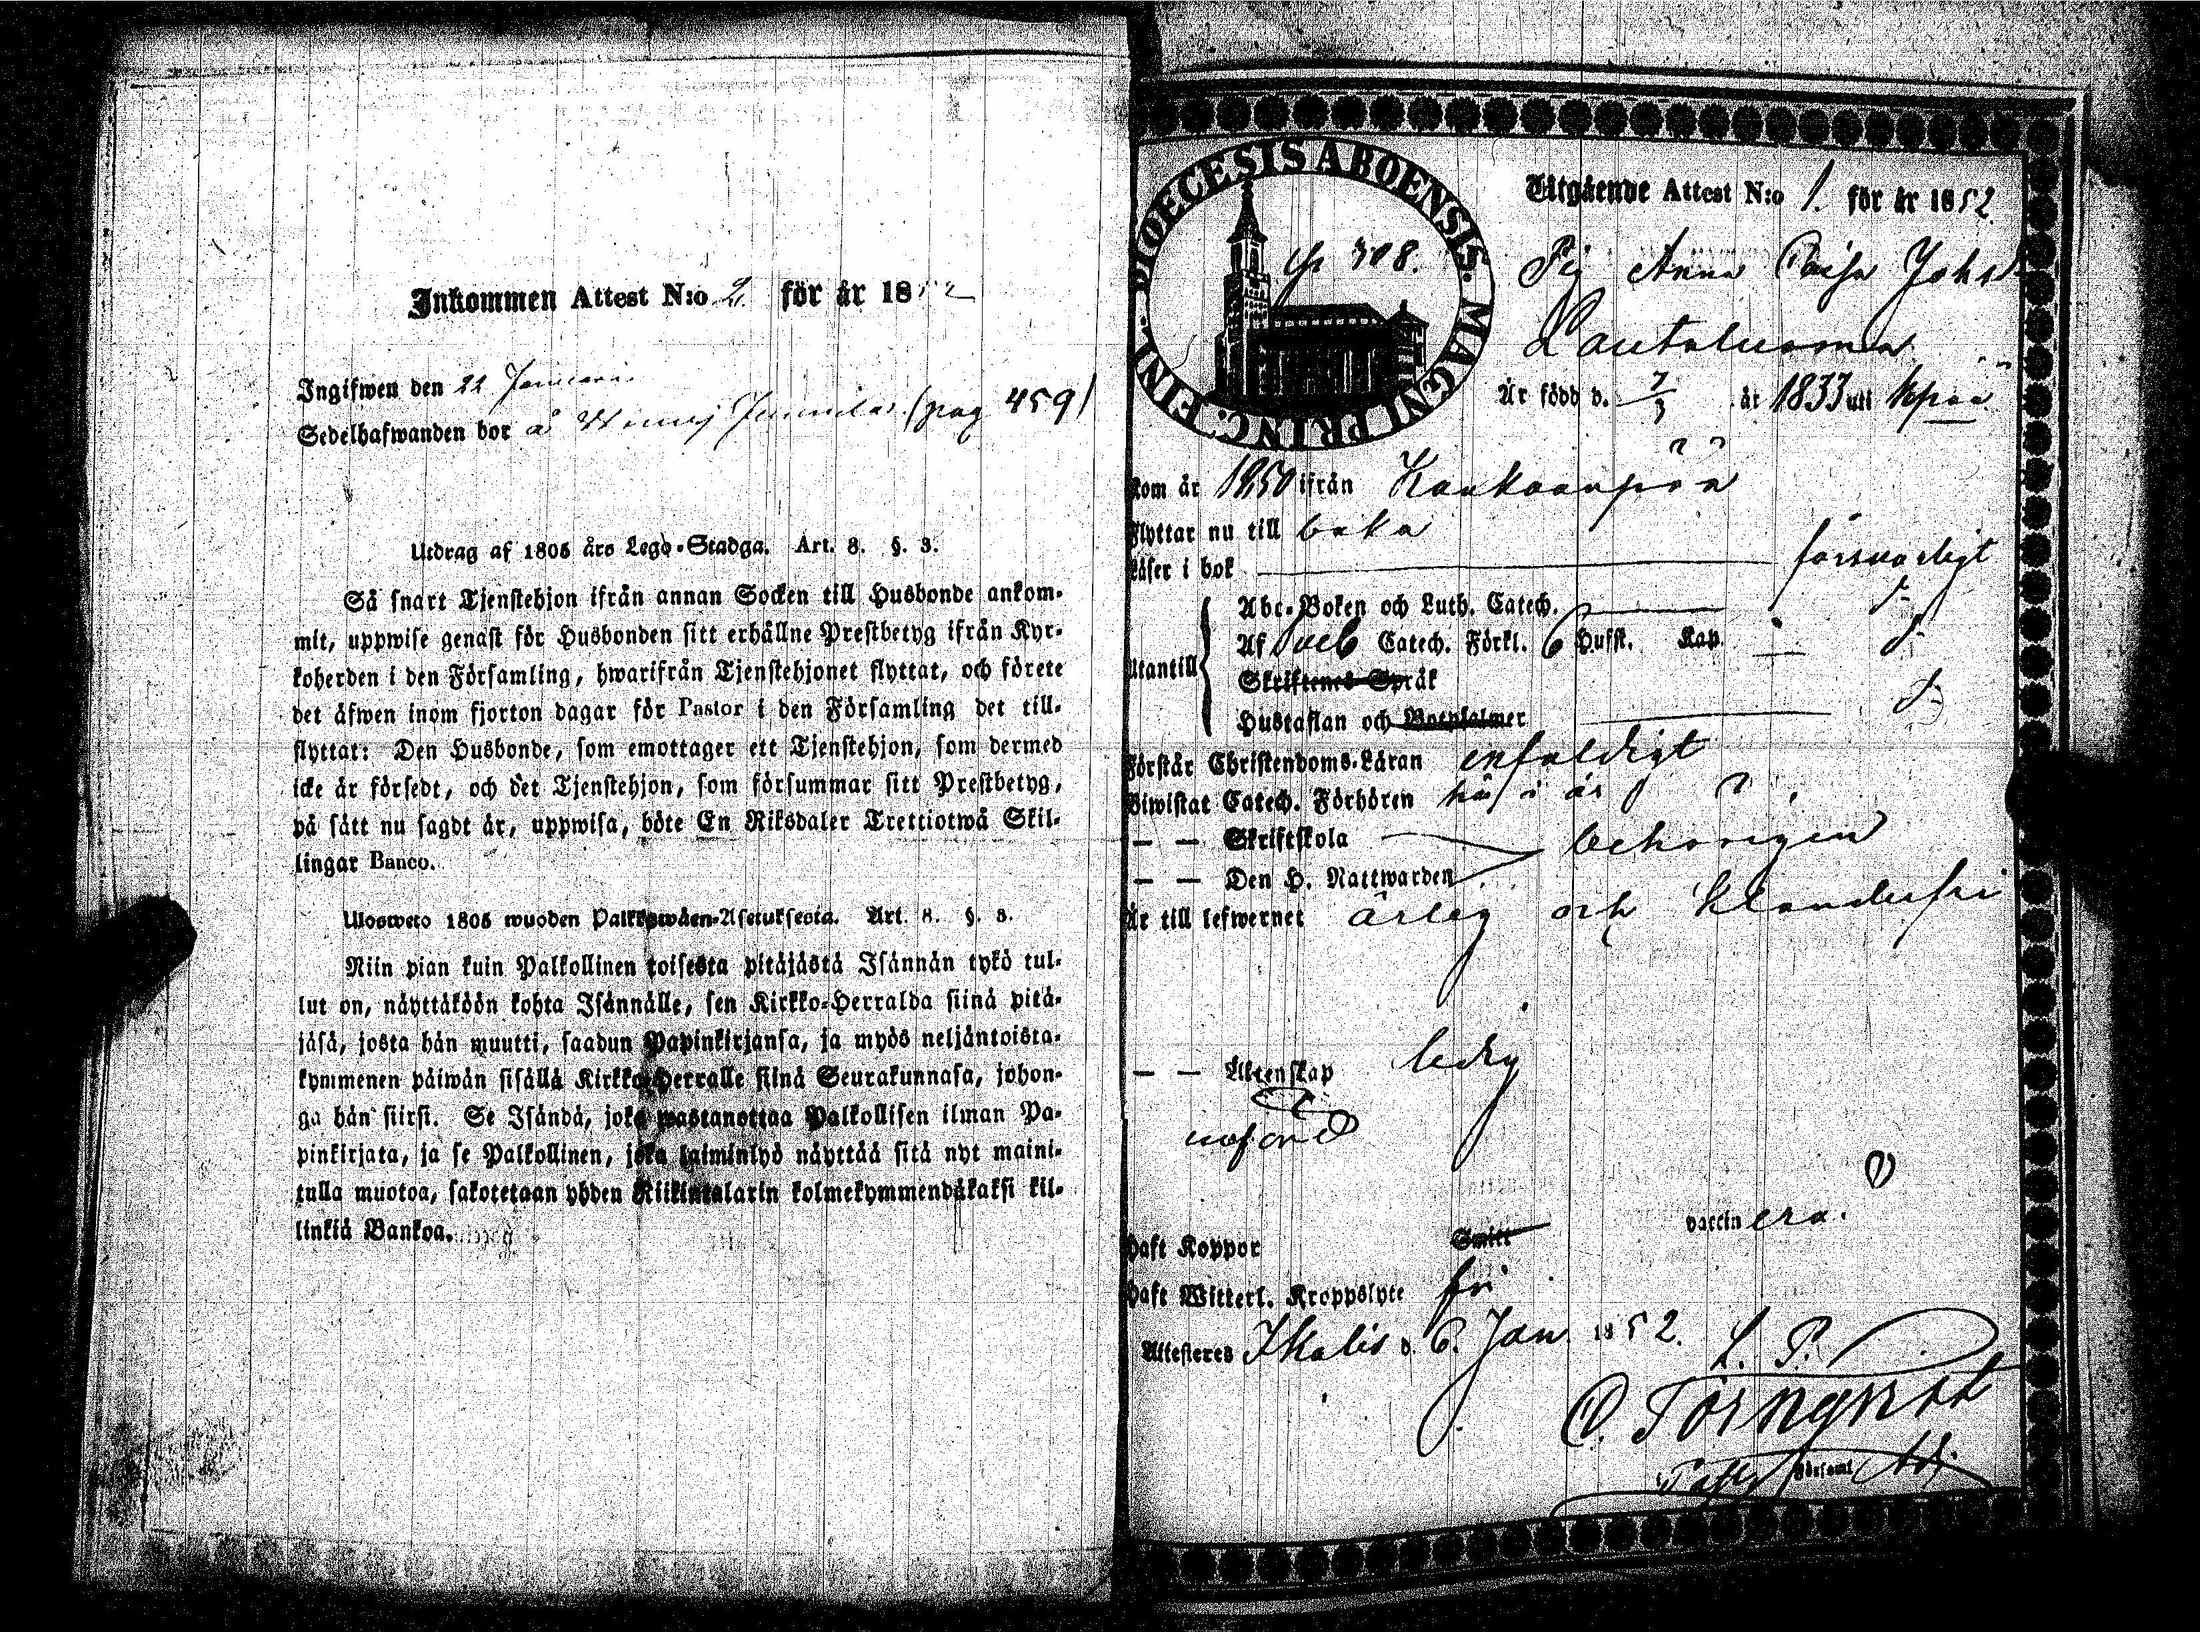 Inkommen Attest N:o 2. för år 1852
Ingifwen den 22 Januari
Sedelhafwanden bor å Junnila (pag 459)
Utdrag af 1805 års Lego-Stadga. Art. 8. §. 3.
Så snart Tjenstehjon ifrån annan Socken till Husbonde ankom-
mit, uppwise genast för Husbonden sitt erhållne Prestbetyg ifrån Kyr-
koherden i den Församling, hwarifrån Tjenstehjonet flyttat, och förete
det äfwen inom fjorton dagar för Pastor i den Församling det till-
flyttat: Den Husbonde, som emottager ett Tjenstehjon, som dermed
icke är försedt, och det Tjenstehjon, som försummar sitt Prestbetyg,
på sätt nu sagdt är, uppwisa, böte En Riksdaler Trettiotwå Skil-
lingar Banco.
Ulosweto 1805 wuoden Palkkawäen-Asetuksesta. Art. 8. §. 3.
Niin pian kuin Palkollinen toisesta pitäjästä Isännän tykö tul-
lut on, näyttäköön kohta Isännälle, sen Kirkko-Herralda siinä pitä-
jäsä, josta hän muutti, saadun Papinkirjansa, ja myös neljäntoista-
kymmenen päiwän sisällä Kirkko-Herralle siinä Seurakunnasa, johon-
ga hän siirsi. Se Isändä, joka wastanottaa Palkollisen ilman Pa-
pinkirjata, ja se Palkollinen, joka laiminlyö näyttää sitä nyt maini-
tulla muotoa, sakotetaan yhden Riikintalarin kolmekymmendäkaksi kil-
linkiä Bankoa.
DIOECESIS ABOENSIS. MAGNI PRINC. FINL.
p 308.
Utgående Attest N:o 1. för år 1852.
Pig Anna Caisa Johsd
Lautaluoma
Är född d. 7/3 år 1833 uti kpää
kom år 1850 ifrån Kankaanpää
Flyttar nu till baka
Läser i bok försvarligt
Utantill
Abc-Boken och Luth. Catech. d-
Af Sveb Catech. Förkl. 6 Hufst. Kap. d-
Skriftenes Språk
Hustaflan och Botpsalmer d-
Förstår Christendoms-Läran enfaldigt
Biwistat Catech. Förhören i år
— — Skriftskola behörigen
— — Den H. Nattwarden
Är till lefwernet ärlig och klanderfri
— — Äktenskap ledig
Haft Koppor Smitt vaccinera.
Haft Witterl. Kroppslyte fri
Attesteras Ikalis d. 6. Jan 1852. L. P.
O. Törnqvist
Församl Adj.